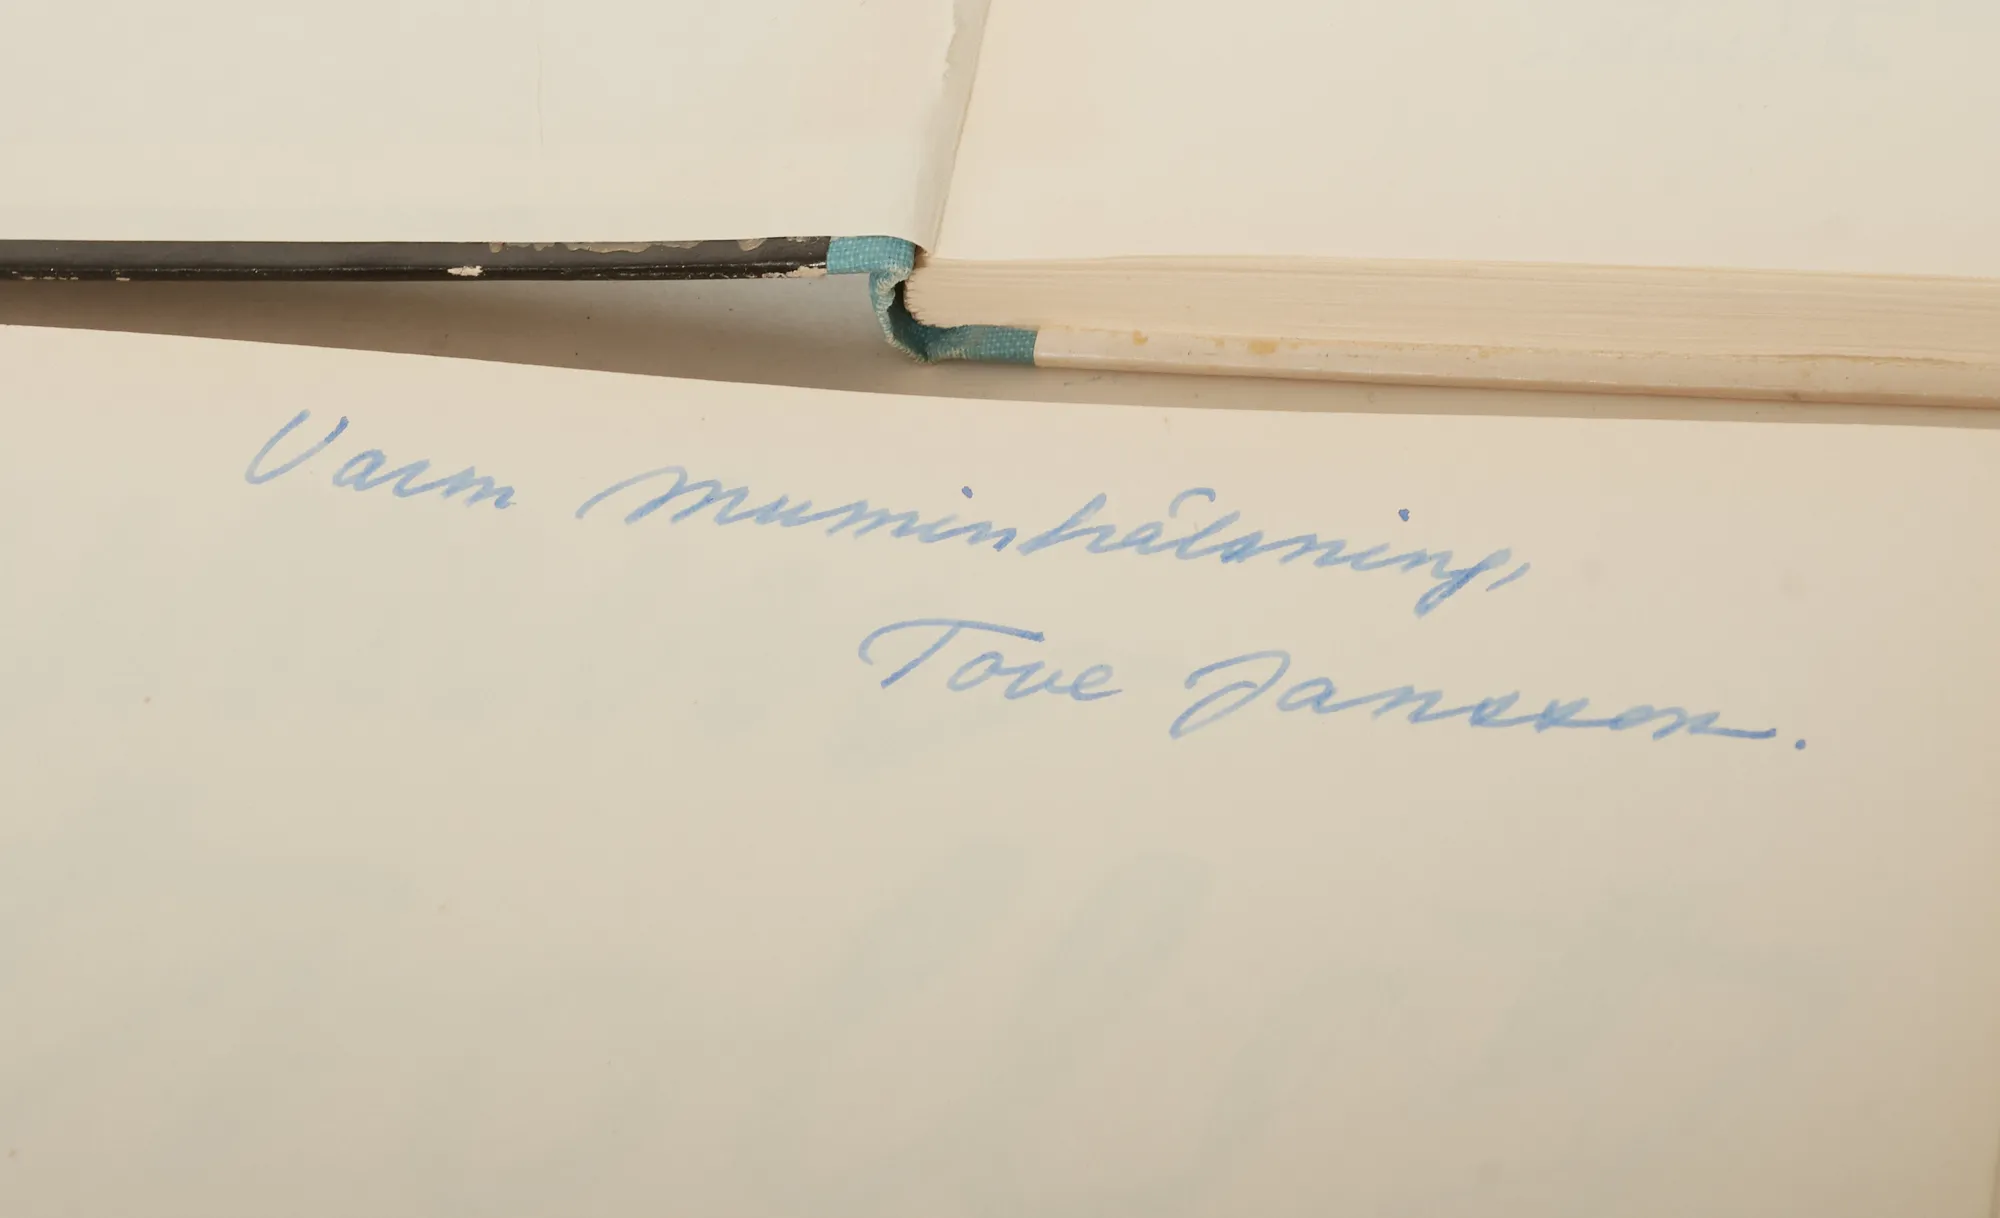 Varm muminhälsning,
Tove Jansson.